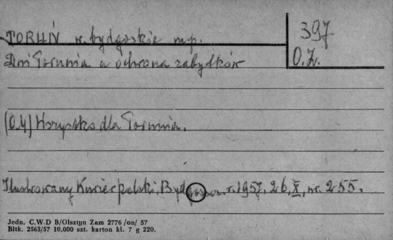 TORUŃ w. bydgoskie m.p.
397
Dni Torunia a ochrona zabytków
O.Z.
(O.Y) Wszystko dla Torunia.
Ilustrowany Kurier Polski, Bydgoszcz r. 1957, 26.X, nr. 255.
Jedn. C.W.D B/Olsztyn Zam 2776/oo/ 57
Bltk. 2563/57 10.000 szt. karton kl. 7 g 220.